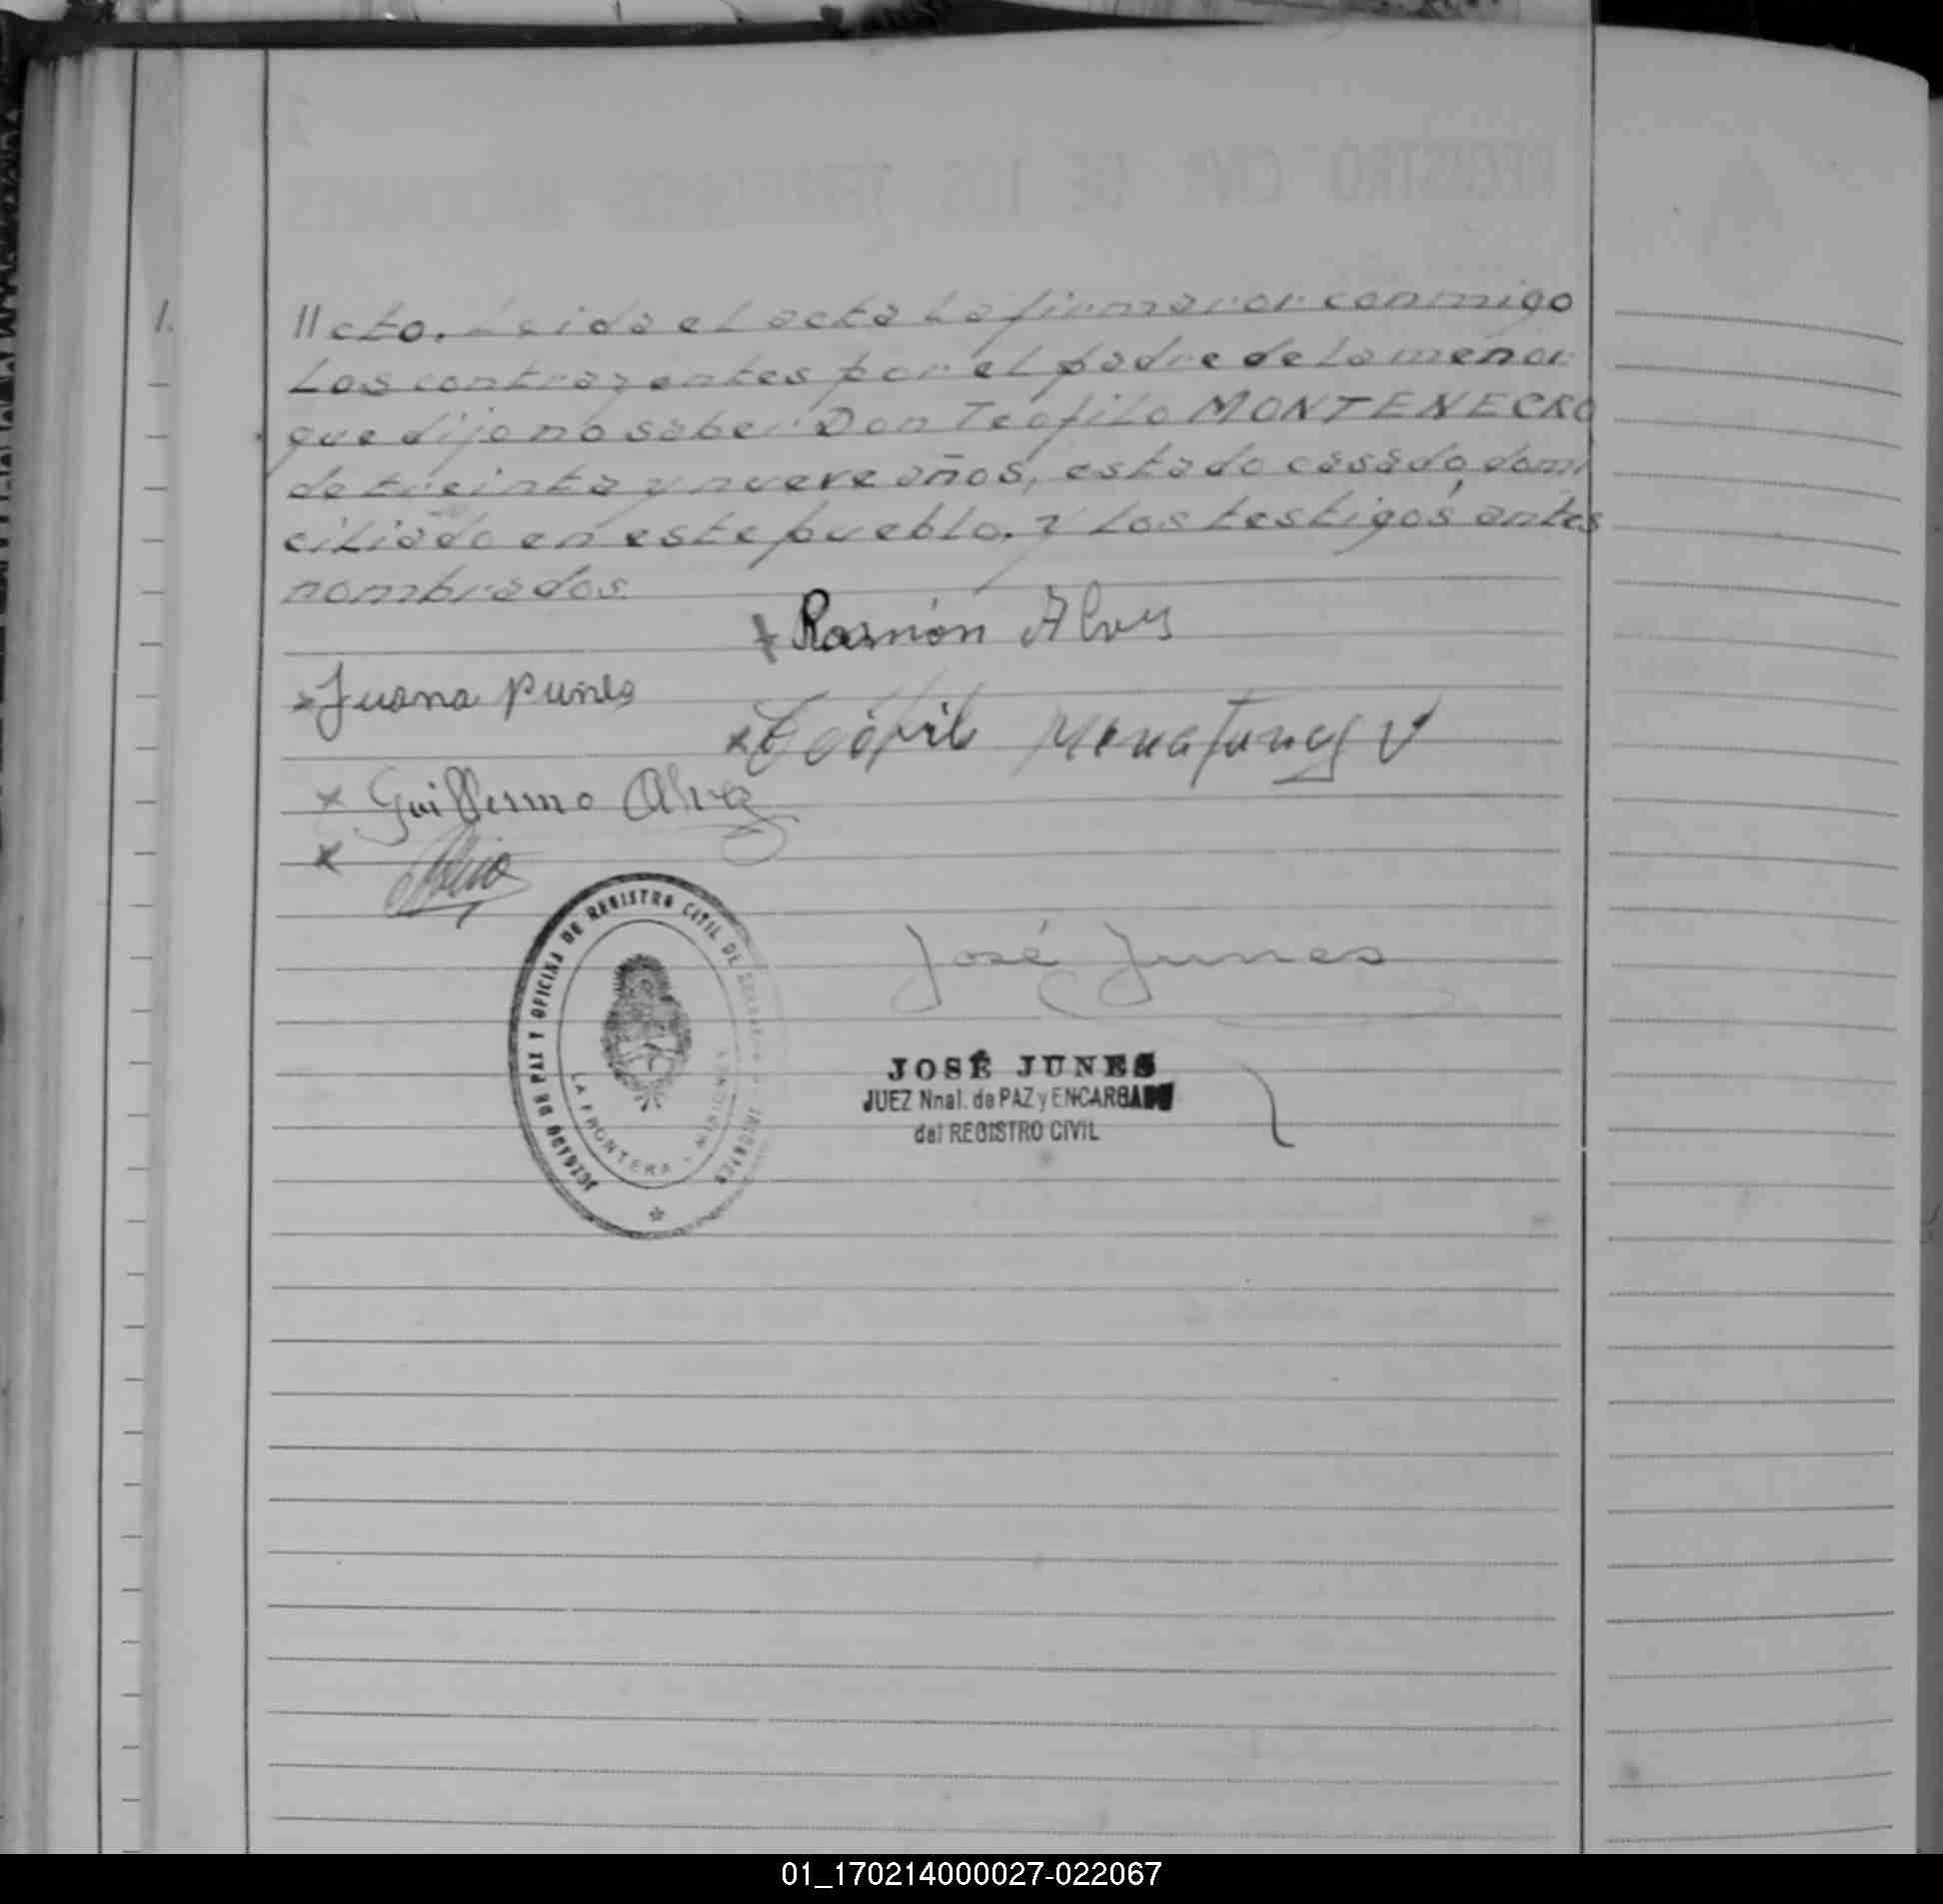 1.
//cto. Leida el acta la firmaron conmigo
los contrayentes por el padre de la menor
que dijo no saber Don Teofilo MONTENEGRO
de treinta y nueve años, estado casado, domi
ciliado en este pueblo. y los testigos antes
nombrados.
x Ramón Alves
x Juana Punes
x Teófil
x Guillermo Alvez
x
JUZGADO DE PAZ Y OFICINA DE REGISTRO CIVIL DE
LA FRONTERA - MISIONES
José Junes
JOSÉ JUNES
JUEZ Nnal. de PAZ y ENCARGADO
del REGISTRO CIVIL
01_170214000027-022067